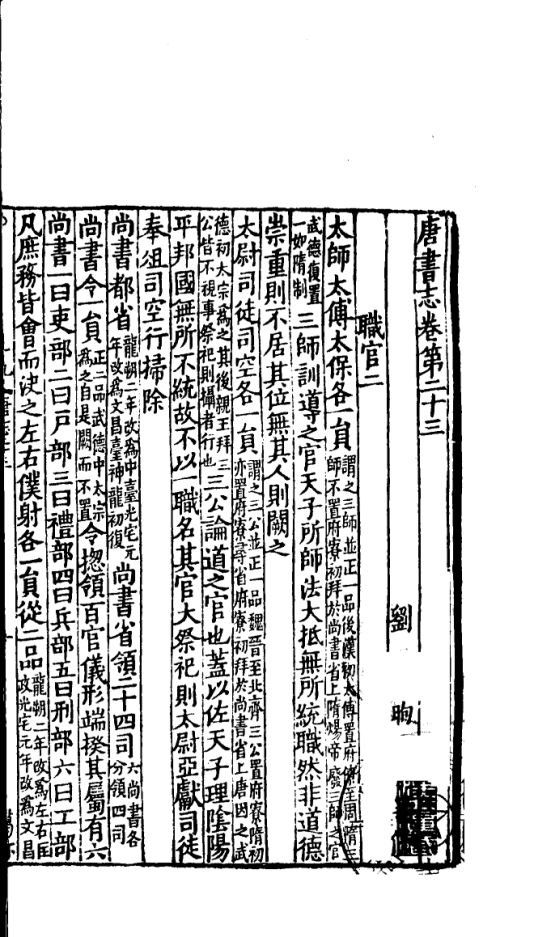 唐書志卷第二十三
劉 昫
職官二
太師太傅太保各一員謂之三師並正一品後漢初太傅置府僚至周隋三師不置府寮初拜於尚書省上隋煬帝廢三師之官
武德復置一如隋制三師訓導之官天子所師法大抵無所統職然非道德
崇重則不居其位無其人則闕之
太尉司徒司空各一員謂之三公並正一品魏晉至北齊三公置府寮隋初亦置府寮尋省府寮初拜於尚書省上唐因之武
德初太宗為之其後親王拜三公皆不視事祭祀則攝者行也三公論道之官也蓋以佐天子理隂陽
平邦國無所不統故不以一職名其官大祭祀則太尉亞獻司徒
奉俎司空行掃除
尚書都省龍朔二年改為中臺光宅元年改為文昌臺神龍初復尚書省領二十四司六尚書各分領四司
尚書令一員正二品武德中太宗為之自是闕而不置令揔領百官儀形端揆其屬有六
尚書一曰吏部二曰戸部三曰禮部四曰兵部五曰刑部六曰工部
凡庶務皆會而決之左右僕射各一員從二品龍朔二年改為左右匡政光宅元年改為文昌